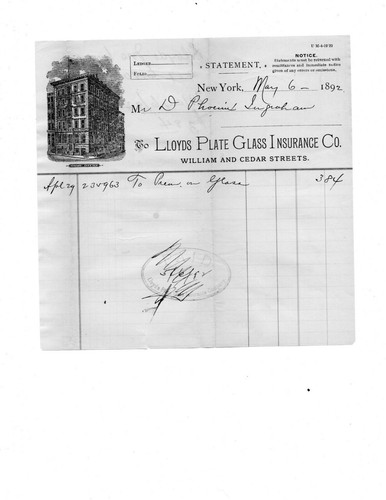 LEDGER
FOLIO
STATEMENT.
NOTICE.
Statements must be returned with
remittances and immediate notice
given of any errors or omissions.
New York, May 6 - 1892
Mr D Phoenix Ingraham
To LLOYDS PLATE GLASS INSURANCE CO.
WILLIAM AND CEDAR STREETS.
Apl 29 235963 To Prem. on Glass 384